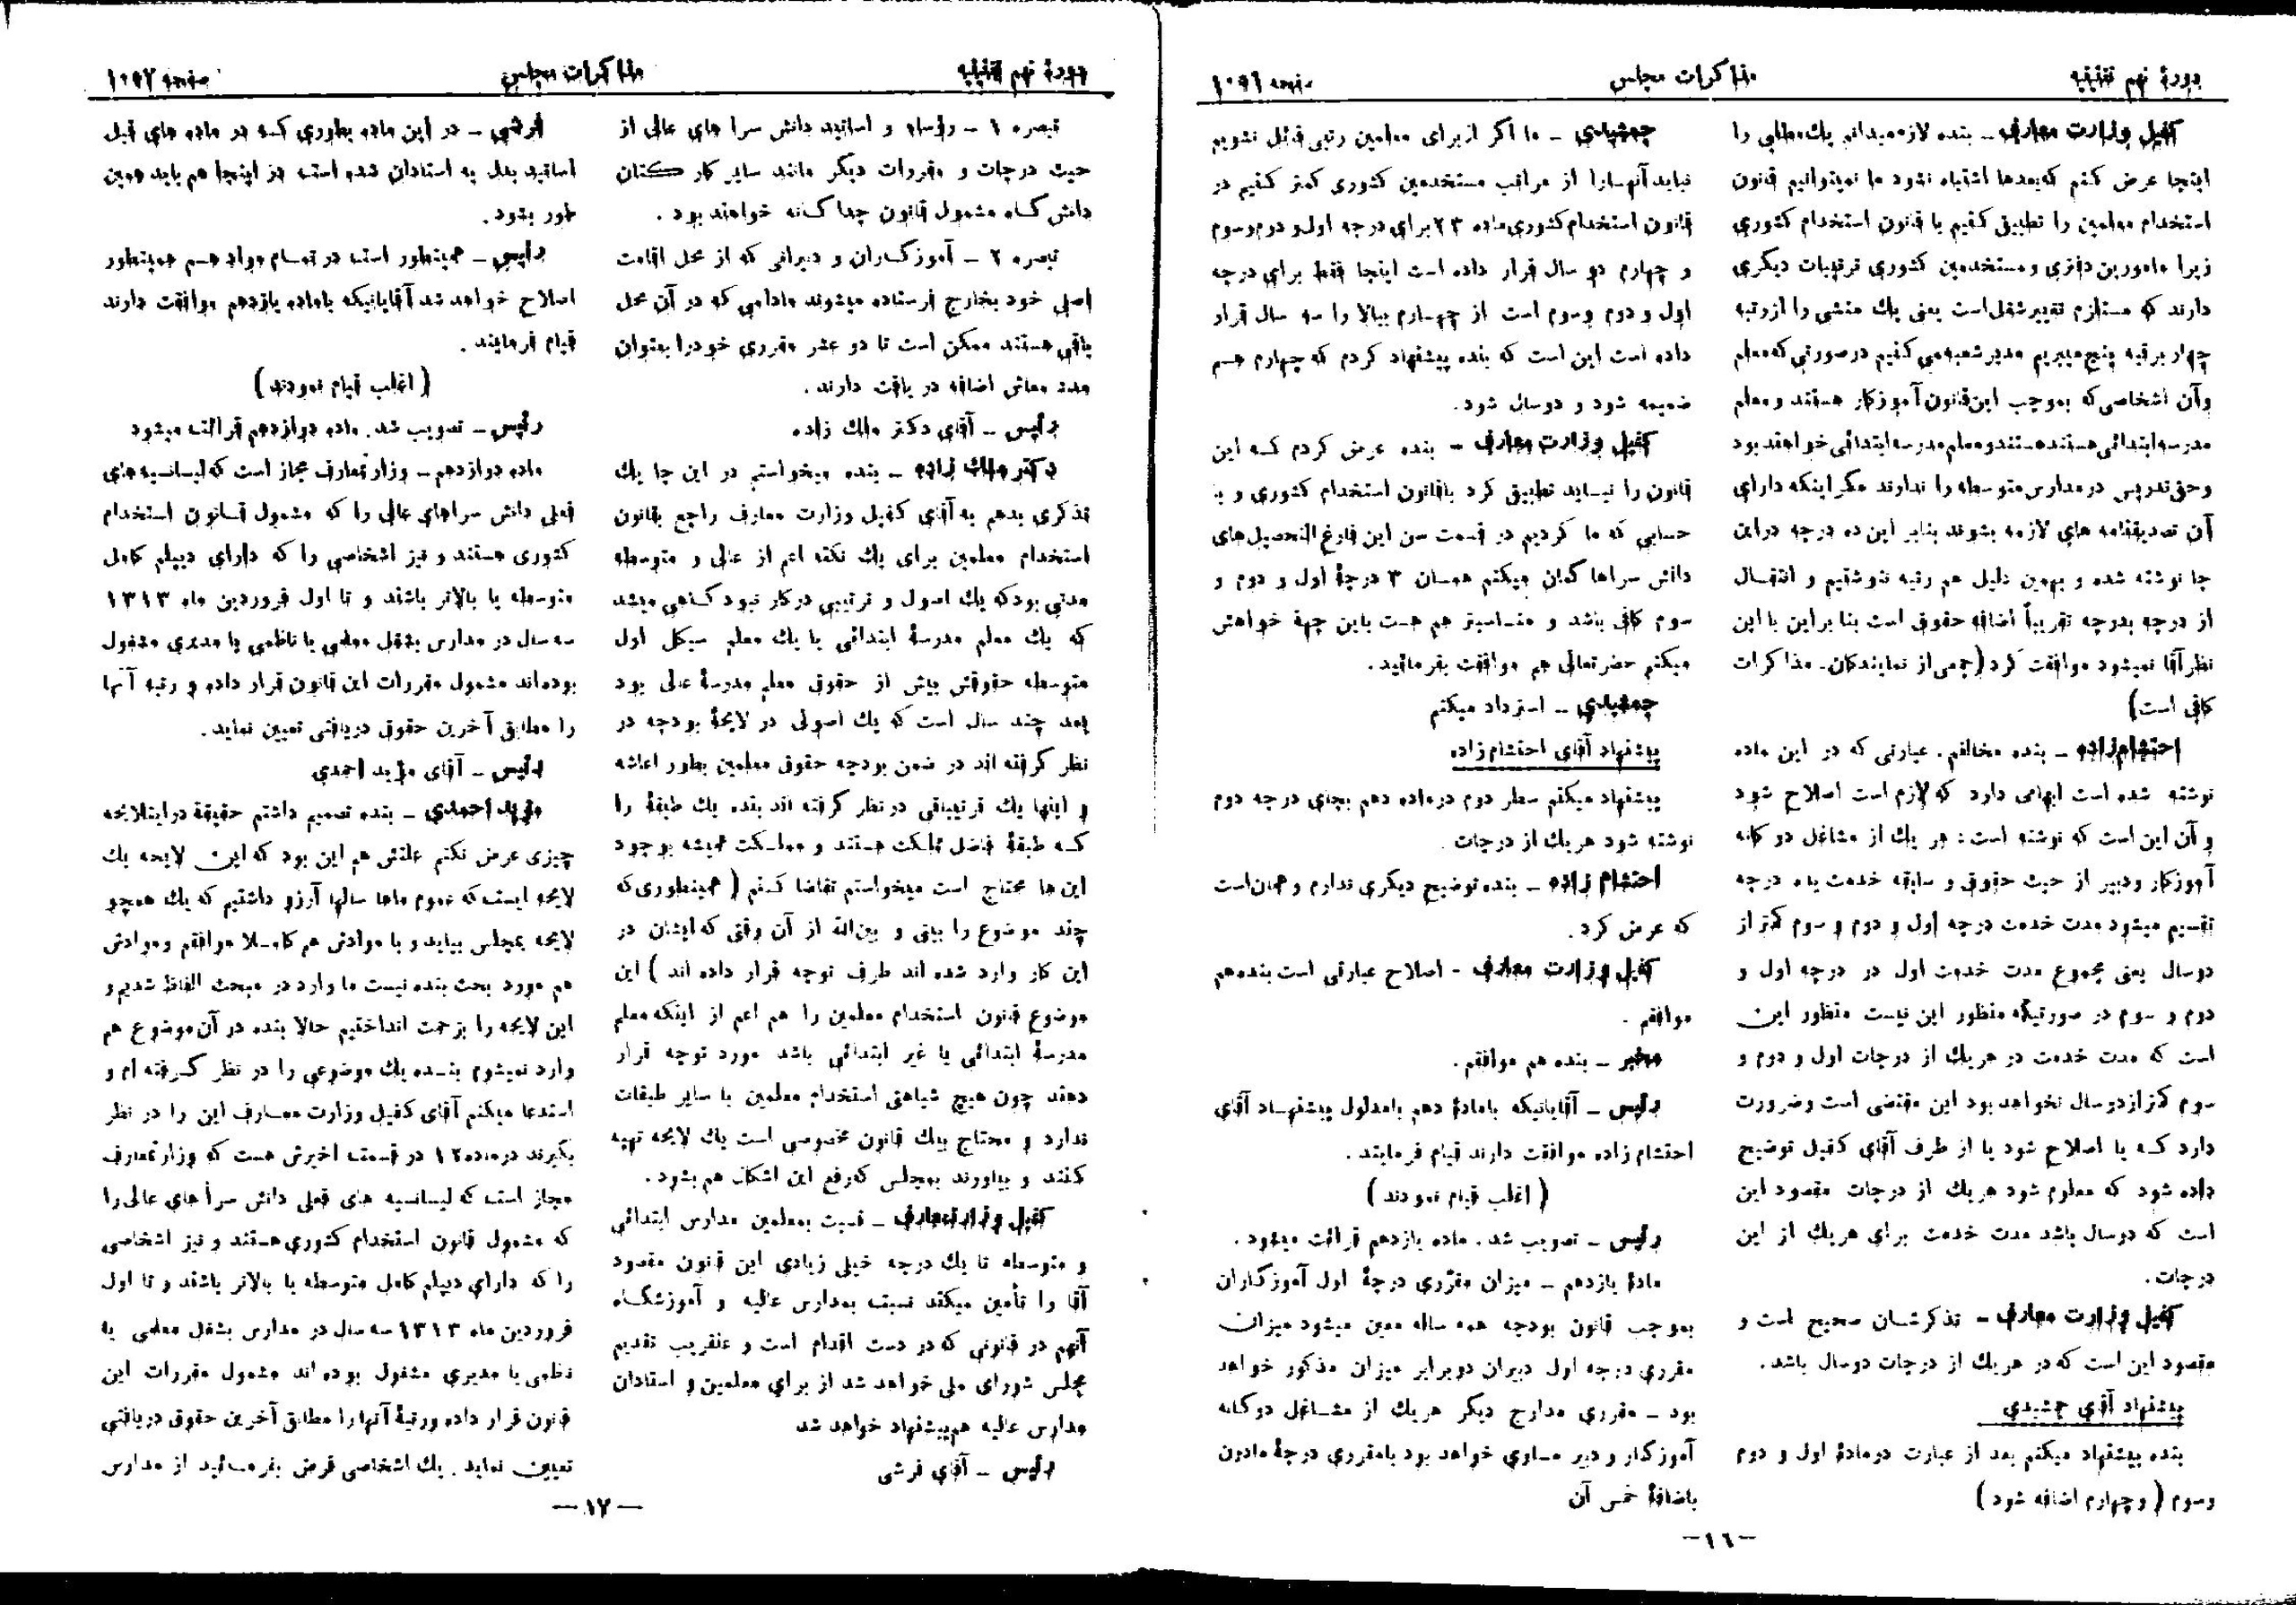 دورهٔ نهم تقنینیه
مذاکرات مجلس
صفحه ۱۰۵۱
کفیل وزارت معارف - بنده لازم میدانم یك مطلبی را
اینجا عرض کنم که بعدها اشتباه نشود ما نمیتوانیم قانون
استخدام معلمین را تطبیق کنیم با قانون استخدام کشوری
زیرا مامورین دفتری و مستخدمین کشوری ترتیبات دیگری
دارند که مستلزم تغییر شغل است یعنی یك منشی را از رتبه
چهار برتبه پنج میبریم مدیر شعبه می کنیم در صورتی که معلم
وآن اشخاصی که بموجب این قانون آموزکار هستند و معلم
مدرسه ابتدائی هستند هستند و معلم مدرسه ابتدائی خواهند بود
و حق تدریس در مدارس متوسطه را ندارند مگر اینکه دارای
آن تصدیقنامه های لازمه بشوند بنابر این ده درجه در این
جا نوشته شده و بهمین دلیل هم رتبه ننوشتیم و انتقـال
از درجه بدرجه تقریباً اضافه حقوق است بنا براین با این
نظر آقا نمیشود موافقت کرد (جمعی از نمایندگان - مذاکرات
کافی است)
احتشام زاده - بنده مخالفم . عبارتی که در این ماده
نوشته شده است ابهامی دارد که لازم است اصلاح شود
و آن این است که نوشته است : هر یك از مشاغل دو کانه
آموزکار و دبیر از حیث حقوق و سابقه خدمت بده درجه
تقسیم میشود مدت خدمت درجه اول و دوم و سوم کمتر از
دوسال یعنی مجموع مدت خدمت اول در درجه اول و
دوم و سوم در صورتیکه منظور این نیست منظور این
است که مدت خدمت در هر یك از درجات اول و دوم و
سوم کمتر از دو سال نخواهد بود این مقتضی است و ضرورت
دارد کـه یا اصلاح شود یا از طرف آقای کفیل توضیح
داده شود که معلوم شود هر یك از درجات مقصود این
است که دوسال باشد مدت خدمت برای هر یك از این
درجات .
کفیل وزارت معارف - تذکرشـان صحیح است و
مقصود این است که در هر یك از درجات دوسال باشد .
پیشنهاد آقای جمشیدی
بنده پیشنهاد میکنم بعد از عبارت در مادهٔ اول و دوم
وسوم ( و چهارم اضافه شود )
جمشیدی - ما اکر از برای معلمین رتبی قائل نشویم
نباید آنهـا را از مراتب مستخدمین کشوری کمتر کـنیم در
قانون استخدام کشوری ماده ۲۳ برای درجه اول و دوم و سوم
و چهارم دو سال قرار داده است اینجا فقط برای درجه
اول و دوم و سوم است از چهـارم ببالا را سه سال قرار
داده است این است که بنده پیشنهاد کردم که چهارم هـم
ضمیمه شود و دوسال شود .
کفیل وزارت معارف - بنده عرض کردم کـه این
قانون را نبـاید تطبیق کرد با قانون استخدام کشوری و با
حسابی که ما کردیم در قسمت سن این فارغ التحصیل های
دانش سراها گمان میکنم همـان ۳ درجهٔ اول و دوم و
سوم کافی باشد و منـاسبتر هم هست باین جهة خواهش
میکنم حضرتعالی هم موافقت بفرمائید .
جمشیدی - استرداد میکنم
پیشنهاد آقای احتشام زاده
پیشنهاد میکنم سطر دوم در ماده دهم بجای درجه دوم
نوشته شود هر یك از درجات
احتشام زاده - بنده توضیح دیگری ندارم و همان است
که عرض کرد .
کفیل وزارت معارف - اصلاح عبارتی است بنده هم
موافقم .
مخبر - بنده هم موافقم .
رئیس - آقایانیکه بامادهٔ دهم بامدلول پیشنهـاد آقای
احتشام زاده موافقت دارند قیام فرمایند .
( اغلب قیام نمودند )
رئیس - تصویب شد . ماده یازدهم قرائت میشود .
مادهٔ یازدهم - میزان مقرّری درجهٔ اول آموزکاران
بموجب قانون بودجه همه ساله معین میشود میزان
مقرری درجه اول دبیران دو برابر میزان مذکور خواهد
بود - مقرری مدارج دیکر هر یك از مشـاغل دوکانه
آموزکار و دبیر مساوی خواهد بود بامقرری درجهٔ مادون
باضافهٔ خمس آن
-۱٦-
دورهٔ نهم تقنینیه
مذاکرات مجلس
صفحه ۱۰۵۲
تبصره ۱ - رؤساء و اساتید دانش سرا های عالی از
حیث درجات و مقررات دیگر مانند سایر کارکـنان
دانش کـاه مشمول قانون جدا کـانه خواهند بود .
تبصره ۲ - آموزکـاران و دبیرانی که از محل اقامت
اصلی خود بخارج فرستاده میشوند مادامی که در آن محل
باقی هستند ممکن است تا دو عشر مقرری خود را بعنوان
مدد معاش اضافه در یافت دارند .
رئیس - آقای دکتر ملك زاده
دکتر ملك زاده - بنده میخواستم در این جا یك
تذکری بدهم به آقای کفیل وزارت معارف راجع بقانون
استخدام معلمین برای یك نکته اعم از عالی و متوسطه
مدتی بود که یك اصول و ترتیبی در کار نبود کـاهی میشد
که یك معلم مدرسهٔ ابتدائی یا یك معلم سیکل اول
متوسطه حقوقش بیش از حقوق معلم مدرسهٔ عالی بود
بعد چند سال است که یك اصولی در لایحهٔ بودجه در
نظر گرفته اند در ضمن بودجه حقوق معلمین بطور اعاشه
و اینها یك ترتیباتی در نظر گرفته اند بنده یك طبقهٔ را
کـه طبقهٔ فاضل مملکت هستند و مملـکت همیشه بوجود
این ها محتاج است میخواستم تقاضا کـنم ( همینطوری که
چند موضوع را بینی و بین الله از آن وقتی که ایشان در
این کار وارد شده اند طرف توجه قرار داده اند ) این
موضوع قانون استخدام معلمین را هم اعم از اینکه معلم
مدرسهٔ ابتدائی یا غیر ابتدائی باشد مورد توجه قرار
دهند چون هیچ شباهتی استخدام معلمین با سایر طبقات
ندارد و محتاج بیك قانون مخصوصی است یك لایحه تهیه
کنند و بیاورند بمجلس که رفع این اشکال هم بشود .
کفیل وزارت معارف - نسبت بمعلمین مدارس ابتدائی
و متوسطه تا یك درجه خیلی زیادی این قانون مقصود
آقا را تأمین میکند نسبت بمدارس عالیه و آموزشگـاه
آنهم در قانونی که در دست اقدام است و عنقریب تقدیم
مجلس شورای ملی خواهد شد از برای معلمین و استادان
مدارس عالیه هم پیشنهاد خواهد شد
رئیس - آقای فرشی
فرشی - در این ماده بطوری کـه در ماده های قبل
اساتید بدل به استادان شده است در اینجا هم باید همین
طور بشود .
رئیس - همینطور است در تمـام مواد هـم همینطور
اصلاح خواهد شد آقایانیکه باماده یازدهم موافقت دارند
قیام فرمایند .
( اغلب قیام نمودند )
رئیس - تصویب شد . ماده دوازدهم قرائت میشود
ماده دوازدهم - وزارتمعارف مجاز است که لیسانسیه های
فعلی دانش سراهای عالی را که مشمول قـانون استخدام
کشوری هستند و نیز اشخاصی را که دارای دیپلم کامل
متوسطه یا بالاتر باشند و تا اول فروردین ماه ۱۳۱۳
سه سال در مدارس بشغل معلمی یا ناظمی یا مدیری مشغول
بوده اند مشمول مقررات این قانون قرار داده و رتبه آنها
را مطابق آخرین حقوق دریافتی تعیین نماید .
رئیس - آقای مؤید احمدی
مؤید احمدی - بنده تصمیم داشتم حقیقة در اینلایحه
چیزی عرض نکنم علتش هم این بود که این لایحه یك
لایحه ایست که عموم ماها سالها آرزو داشتیم که یك همچو
لایحه بمجلس بیاید و با موادش هم کامـلا موافقم و موادش
هم مورد بحث بنده نیست ما وارد در مبحث الفاظ شدیم و
این لایحه را بزحمت انداختیم حالا بنده در آن موضوع هم
وارد نمیشوم بنـده یك موضوعی را در نظر گـرفته ام و
استدعا میکنم آقای کفیل وزارت معـارف این را در نظر
بگیرند در ماده ۱۲ در قسمت اخیرش هست که وزارتمعارف
مجاز است که لیسانسیه های فعلی دانش سرا های عالی را
که مشمول قانون استخدام کشوری هستند و نیز اشخاصی
را که دارای دیپلم کامل متوسطه یا بالاتر باشند و تا اول
فروردین ماه ۱۳۱۳ سه سال در مدارس بشغل معلمی یا
نظمی یا مدیری مشغول بوده اند مشمول مقررات این
قانون قرار داده و رتبهٔ آنها را مطابق آخرین حقوق دریافتی
تعیین نماید . یك اشخاصی فرض بفرمـائید از مدارس
-۱۷-